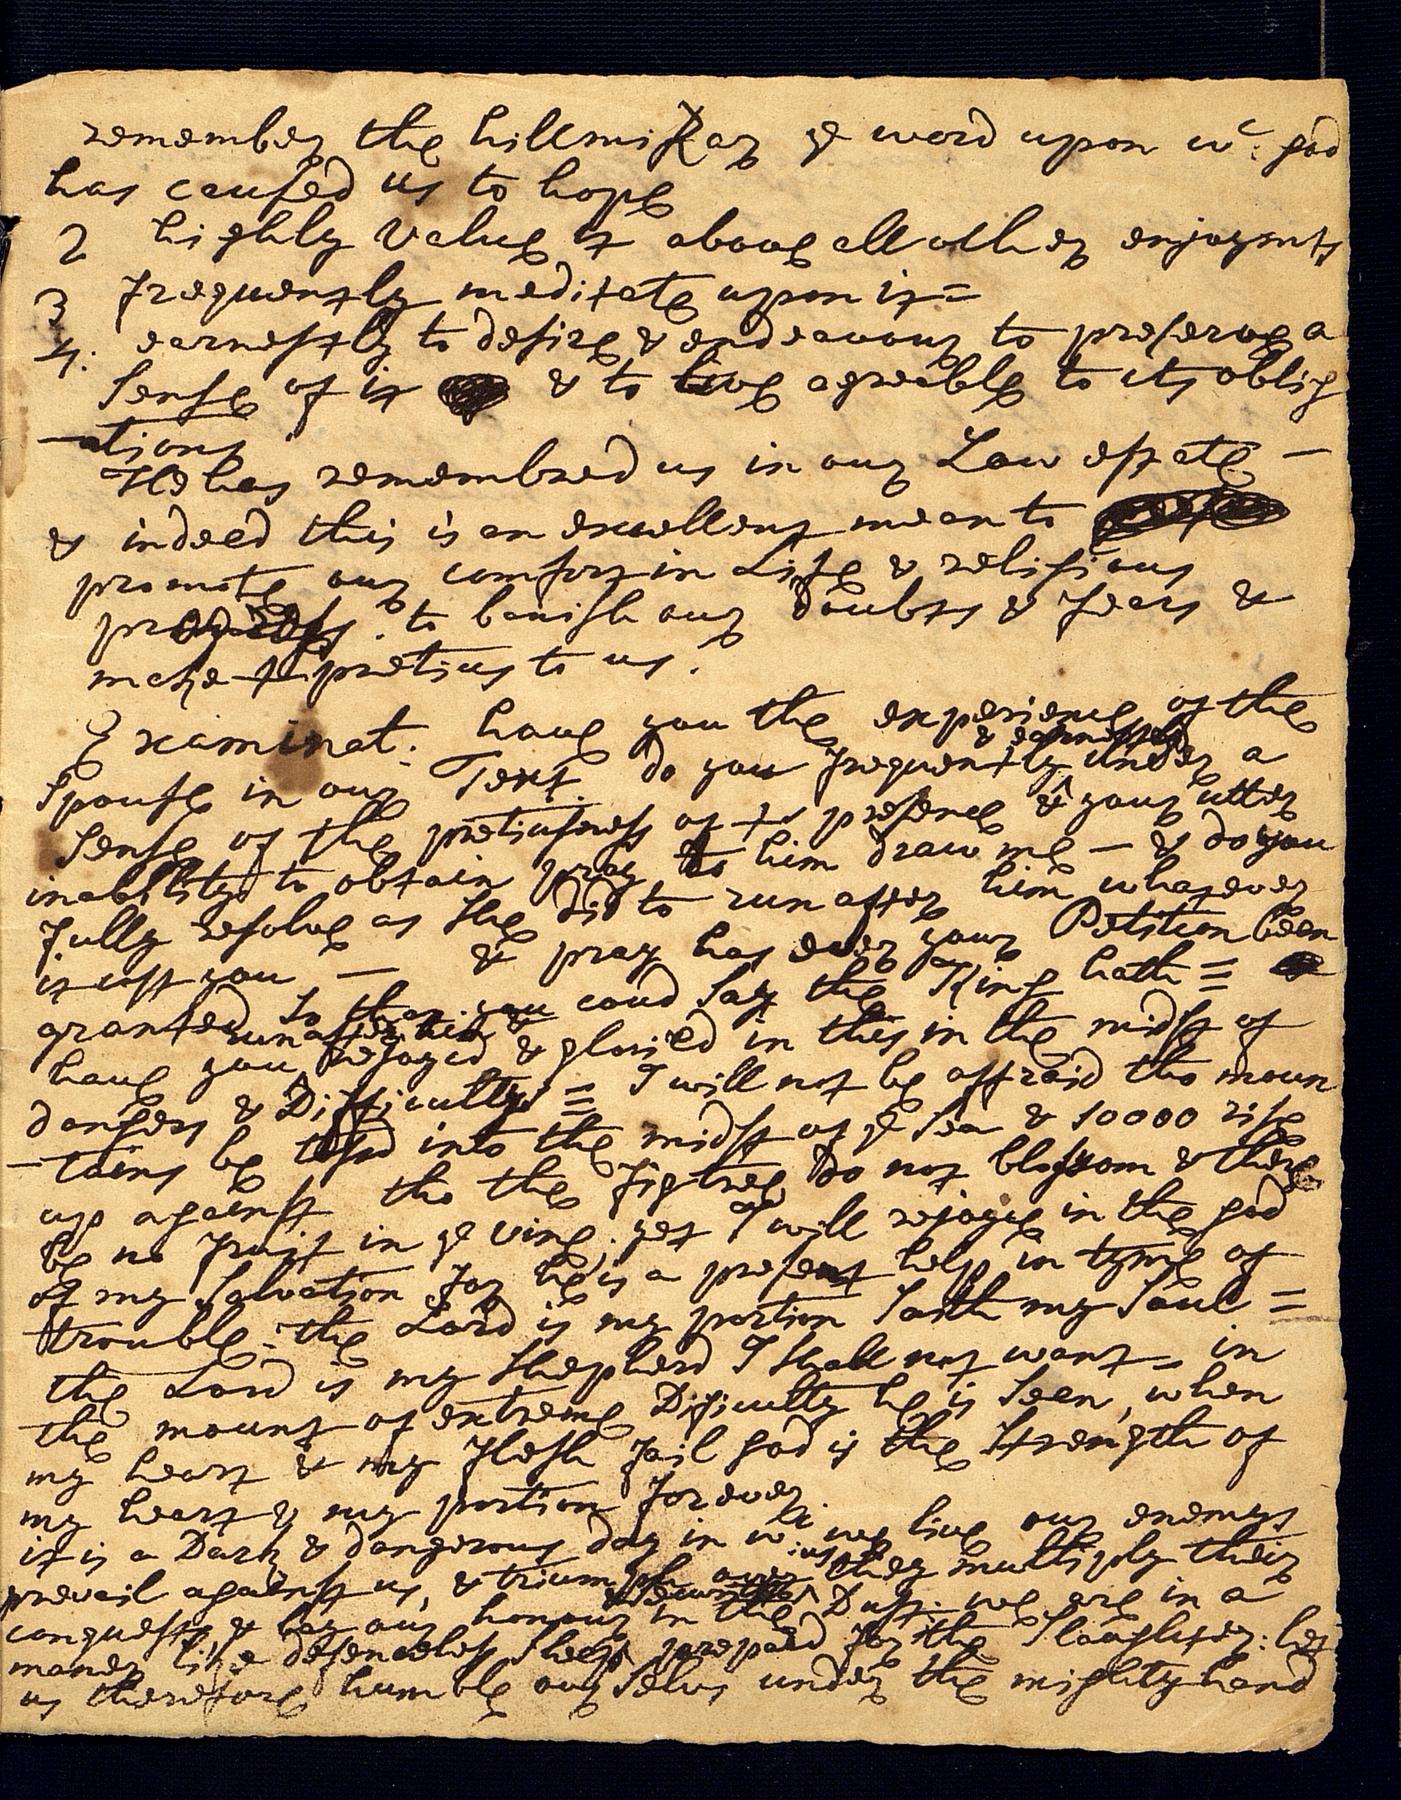 remember the hill mizar ye word upon wc: god
has caused us to hope
2 highly value it above all other enjoymts
3 frequently meditate upon it =
4: earnestly to desire & endeavour to preserve a
sense of it & to live agreeable to its oblig
-ations
He has remembred us in our Low estate -
& indeed this is an excellent mean to
promote our comfort in Life & religious
progress. to banish our doubts & fears &
make pretius to us.
Examinat: have you the experience of the
& earnestly
Spouse in our Text. do you frequently under a
sense of the pretiusness of his presence & your utter
inability to obtain pray to him draw me - & do you
fully resolve as she did to run after him whatever
it cost you - & pray has ever your Petition been
granted so that you coud say the King hath =
run after him &
have you rejoyced & gloried in this in the midst of
dangers & Difficultys = I will not be affraid tho moun
-tains be tossd into the midst of ye sea & 10000 rise
up against tho the figtree do not blossom & there
be no fruit in ye vine. yet I will rejoyce in the god
of my salvation for he is a present help in tyme of
trouble: the Lord is my portion saith my soul =
the Lord is my shepherd I shall not want = in
the mount of extreme Difficulty he is seen, when
my heart & my flesh fail god is the strength of
my heart & my portion forever.
it is a Dark & dangerous day in wc: we live our enemys
prevail against us, & triumph over us they multiply their
conquests, & lay our honour in the Dust. we are in a
maner like defenceless sheep prepard for the slaughter: let
us therefore humble our selvs under the mighty hand